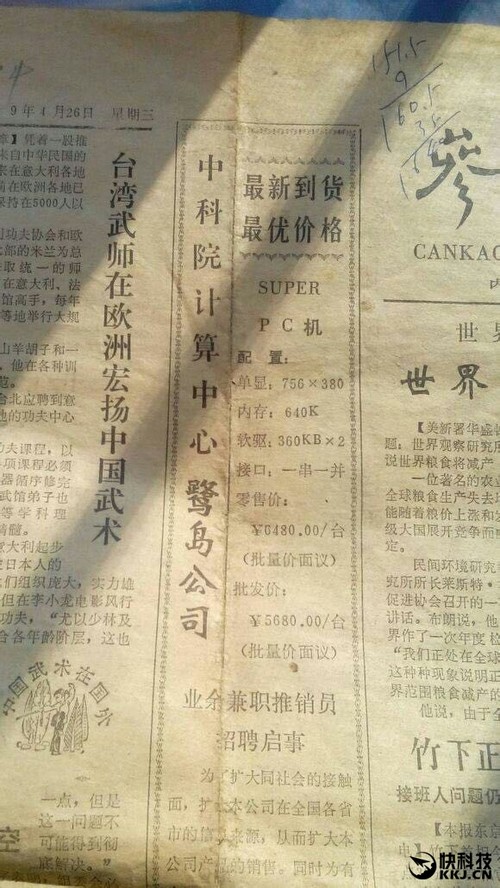 9年4月26日 星期三
】凭着一股推
来自中华民国的
在意大利各地
在欧洲各地已
保持在5000人以
功夫协会和欧
部的米兰为总
取统一的师
在意大利、法
馆高手，每年
等地举行大规
山羊胡子和一
，他在各种训
台北应聘到意
他的功夫中心
夫课程，以
项课程必须
器循序修完
武馆弟子也
等学科理
精髓。
意大利起步
日本人的
们组织庞大，实力雄
但在李小龙电影风行
功夫，“尤以少林及
合各年龄阶层，这也
台湾武师在欧洲宏扬中国武术
中国武术在国外
一点，但是
这一问题不
可能得到彻
底解决。”
空
中科院计算中心鹭岛公司
最新到货
最优价格
SUPER
PC机
配置:
单显: 756×380
内存: 640K
软驱: 360KB×2
接口: 一串一并
零售价:
¥6480.00/台
(批量价面议)
批发价:
¥5680.00/台
(批量价面议)
业余兼职推销员
招聘启事
为了扩大同社会的接触
面，扩大本公司在全国各省
市的信息来源，从而扩大本
公司产品的销售。同时为有
151.5
9
160.5
参
CANKAO
内
世界
世界
【美新署华盛
题：世界观察研究所
说世界粮食将减产
一位著名的农业
全球粮食生产失去
能随着粮价上涨和
级大国展开竞争而
定。
民间环境研究
究所所长莱斯特·
促进协会召开的一
讲话。布朗说，他
界作了一次年度检
“我们正处在全球
这种种现象说明正
界范围粮食减产的
他说，由于全
竹下正
接班人问题仍
【本报东京
电】竹下首相
快科技
KKJ.CN